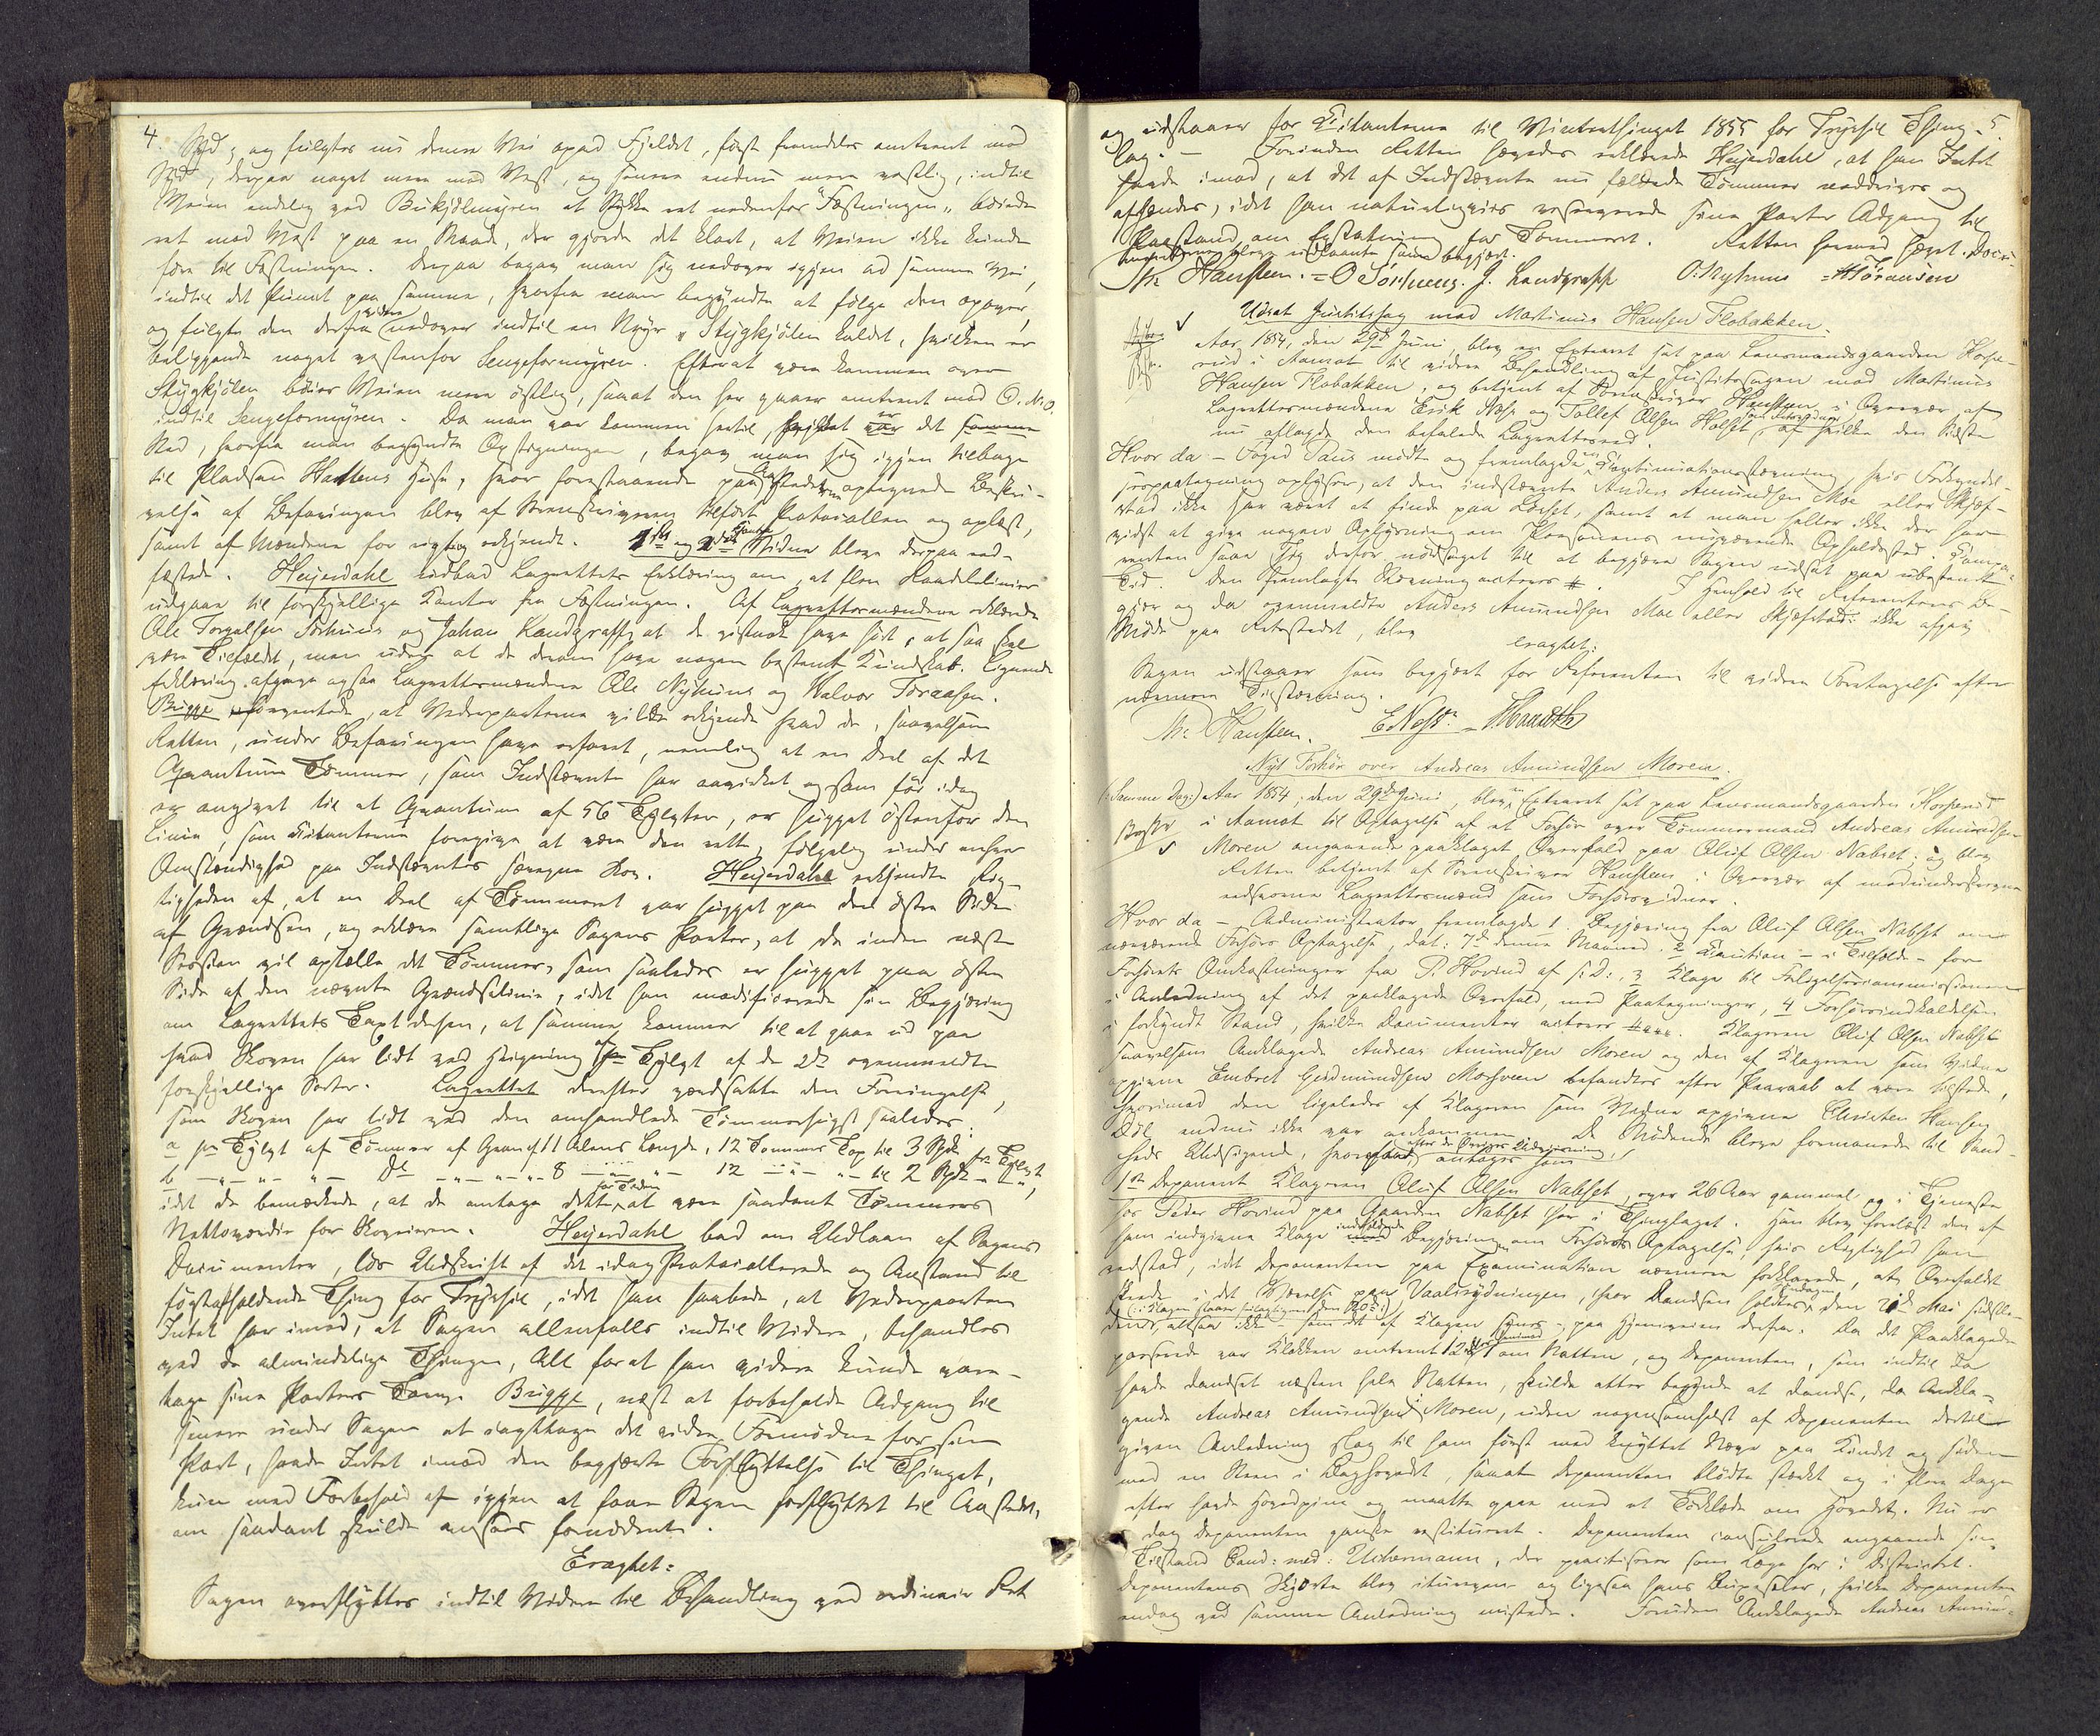 4.
Syd, og fulgtes nu denne Vei opad Fjeldet, først fremdeles omtrent mod
Syd, derpaa noget mere mod Vest, og senere endnu mere vestlig, indtil
Veien endelig ved Bukjølmyren et Stykke ret nedenfor "Fæstningen" böiede
ret mod Vest paa en Maade, der gjorde det klart, at Veien ikke kunde
føre til Fæstningen. Derpaa begav man sig nedover igjen ad samme Vei,
indtil det Punct paa samme, hvorfra man begyndte at følge den opover,
og fulgte den derfra videre nedover indtil en Myr "Stygkjölen" kaldet, hvilken er
beliggende noget vestenfor Sengeformyren. Efterat være kommen over
Stygkjölen böier Veien mere östlig, saaat den her gaaer omtrent mod O.N.O.
indtil Sengeformyren. Da man var kommen hertil, hvilket er det samme
Sted, hvorfra man begyndte Opstigningen, begav man sig igjen tilbage
til Pladsen Hattens Huse, hvor forestaaende paa Aastederne optegnede Beskri-
velse af Befaringen blev af Sorenskriveren tilført Protocollen og oplæst,
samt af Mændene for rigtig erkjendt. 1ste og 2det Vidne bleve derpaa ed-
fæstede. Heyerdahl udbad Lagrettets Erklæring om, at flere Kandelinier
udgaae til forskjellige Kanter fra Fæstningen. Af Lagrettesmændene erklærede
Ole Torgalsen Sørhuus og Johan Landgraff, at de vistnok have hört, at saa skal
være Tilfældet, men uden at de derom have nogen bestemt Kundskab. Lignende
Erklæring afgave ogsaa Lagrettesmændene Ole Nyhuus og Halvor Töraasen.
Brigge forventede, at Vederparterne vilde erkjende hvad de, saavelsom
Retten, under Befaringen have erfaret, nemlig at en Deel af det
Qvantum Tömmer, som Indstævnte har avirket og som för idag
er angivet til et Qvantum af 56 Tylvter, er hugget östenfor den
Linie, som Citanterne foregive at være den rette, følgelig under enhver
Omstændighed paa Indstævntes særegne Skov. Heyerdahl erkjendte Rig-
tigheden af, at en Deel af Tömmeret var hugget paa den östre Side
af Grændsen, og erklærede samtlige Sagens Parter, at de inden næste
Session vil optælle det Tömmer, som saaledes er hugget paa östre
Side af den nævnte Grændselinie, idet han modificerede sin Begjæring
om Lagrettets Taxt derhen, at samme kommer til at gaae ud paa
hvad Skoven har lidt ved Hugning af pr Tylvt af de 2de ovenmeldte
forskjellige Sorter. Lagrettet derefter værdsatte den Forringelse,
som Skoven har lidt ved den omhandlede Tömmerhugst saaledes:
a pr Tylvt af Tömmer af Gran af 11 Alens Længde, 12 Tommers Top til 3 Spd. pr Tylvt
b -"- -"- -"- Do -"- -"- 8 -"- -"- 12 -"- -"- til 2 Spd. -"-
idet de bemærkede, at de antage dette for Tiden at være saadant Tömmers
Nettoværdie for Skoveieren. Heyerdahl bad om Udlaan af Sagens
Documenter, lös Udskrift af det idag Protocollerede og Anstand til
förstafholdende Thing for Trysild, idet han haabede, at Vederparten
Intet har imod, at Sagen allenfalls indtil Videre, behandles
ved de almindelige Thinge, Alt forat han videre kunde vare-
tage sine Parters Tarv. Brigge, næst at forbeholde Adgang til
senere under Sagen at iagttage det videre Fornødne for sin
Part, havde Intet imod den begjærte Forflyttelse til Thinget,
kun med Forbehold af igjen at faae Sagen forflyttet til Aastedet,
om saadant skulde ansees fornödent.
Eragtet:
Sagen overflyttes indtil Videre til Behandling ved ordinair Ret
5.
og udstaaer for Citanterne til Vinterthinget 1855 for Trysil Thing-
lag. - Forinden Retten hævedes erklærede Heyerdahl, at han Intet
havde imod, at det af Indstævnte nu fældede Tömmer neddrives og
afsendes, idet han naturligviis reserverede sine Parter Adgang til
Paastand om Erstatning for Tömmeret. Retten hermed hævet. Docu-
menterne bleve udlaante som begjært.
Mr. Hansteen. O Sörhuus. J. Landgraff O. Nyhuus HTöraasen
Udsat Justitssag mod Martinus Hansen Flobakken.
Aar 1854, den 29de Juni, blev en Extraret sat paa Lensmandsgaarden Hovse-
rud i Aamot til videre Behandling af Justitssagen mod Martinus
Hansen Flobakken, og betjent af Sorenskriver Hansteen i Overvær af
Lagrettesmændene Erik Næss og Tollef Olsen Holset, af hvilke den Sidste
nu aflagde den befalede Lagrettesed.
Hvor da - Foged Paus mödte og fremlagde en Continuationsstævning hvis Forkyndel-
sespaategning oplyser, at den indstævnte Anders Amundsen Moe eller Skjæf-
stad ikke har været at finde paa Løset, samt at man heller ikke der har
vidst at give nogen Oplysning om Personens nuværende Opholdssted. Compa-
renten saae sig derfor nödsaget til at begjære Sagen udsat paa ubestemt
Tid. Den fremlagte Stævning acteres #. I Henhold til Referentens Be-
gjær og da ovenmeldte Anders Amundsen Moe eller Skjæfstad ikke afgav
Møde paa Retsstedet, blev
eragtet:
Sagen udstaaer som begjært for Referenten til videre Foretagelse efter
nærmere Tilstævning.
Mr. Hansteen. ENess.
Nyt Forhør over Andreas Amundsen Moren.
(: Samme Dag:) Aar 1854, den 29de Juni, blev en Extraret sat paa Lensmandsgaarden Hovserud
i Aamot til Optagelse af et Forhör over Tömmermand Andreas Amundsen
Moren angaaende paaklaget Overfald paa Oluf Olsen Nabset; og blev
Retten betjent af Sorenskriver Hansteen i Overvær af medunderskrevne
edsvorne Lagrettesmænd som Forhørsvidner.
Hvor da - Administrator fremlagde 1 Begjæring fra Oluf Olsen Nabset om
nærværende Forhørs Optagelse, dat: 7de denne Maaned. 2 Caution - i Tilfælde - for
Forhørets Omkostninger fra P. Hovind af s: D: 3 Klage til Forligelsescommissionen
i Anledning af det paaklagede Overfald, med Paategninger, 4 Forhørsindkaldelsen
i forkyndt Stand, hvilke Documenter acteres. Klageren Oluf Olsen Nabset
saavelsom Anklagede Andreas Amundsen Moren og den af Klageren som Vidne
opgivne Embret Gudmundsen Morsveen befandtes efter Paaraab at være tilstede,
hvorimod den ligeledes af Klageren som Vidne opgivne Christen Hansen
Döl endnu ikke var ankommen. De Mödende bleve formanede til Sand-
heds Udsigende, hvorefter antoges som
1ste Deponent Klageren Oluf Olsen Nabset, over 26 Aar gammel og i Tjeneste
hos Peder Hovind paa Gaarden Nabset her i Thinglaget. Han blev forelæst den af
ham indgivne Klage indeholdende Begjæring om Forhørets Optagelse, hvis Rigtighed han
vedstod, idet Deponenten paa Examination nærmere forklarede, at Overfaldet
skede i det Værelse paa Vaalsrydningen, hvor Dandsen holdtes, Söndagen den 21de Mai sidstle-
den (: i Klagen staaer feilagtigen den 20de:), altsaa ikke som det af Klagen synes - paa Hjemveien derfra. Da det Paaklagede
passerede var Klokken omtrent 12 a 1 om Natten, og Deponenten, som indtil da
havde dandset næsten hele Natten, skulde atter begynde at dandse, da Ankla-
gede Andreas Amundsen Moren, uden nogensomhelst af Deponenten dertil
given Anledning slog til ham först med knyttet Næve paa Kindet og siden
med en Steen i Baghovedet, saaat Deponenten blödte stærkt og i flere Dage
efter havde Hovedpine og maatte gaae med et Törklæde om Hovedet. Nu er
dog Deponenten ganske restitueret. Deponenten consulerede angaaende sin
Tilstand Cand: med: Uchermann, der practiserer som Læge her i Districtet.
Deponentens Skjorte blev itureven og ligesaa hans Buxeseler, hvilke Deponenten
endog ved samme Anledning mistede. Foruden Anklagede Andreas Amund-